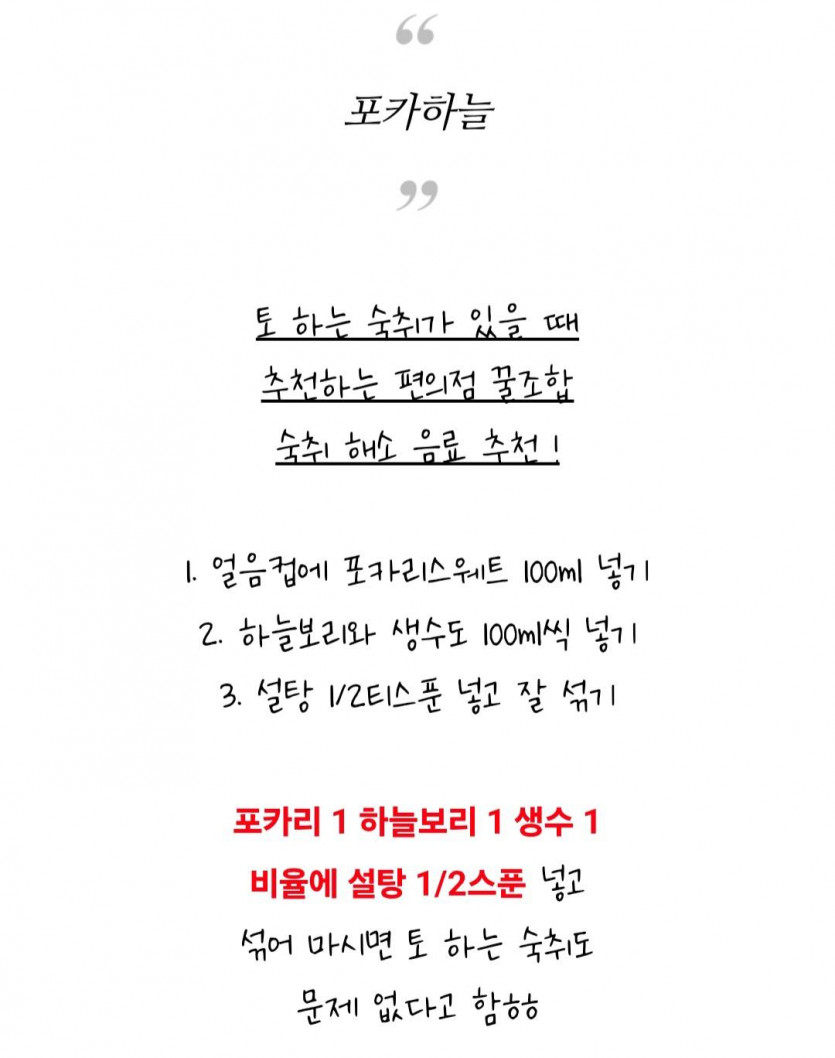 “
포카하늘
”
토 하는 숙취가 있을 때
추천하는 편의점 꿀조합
숙취 해소 음료 추천!
1. 얼음컵에 포카리스웨트 100ml 넣기
2. 하늘보리와 생수도 100ml씩 넣기
3. 설탕 1/2티스푼 넣고 잘 섞기
포카리 1 하늘보리 1 생수 1
비율에 설탕 1/2스푼 넣고
섞어 마시면 토 하는 숙취도
문제 없다고 함ㅎㅎ